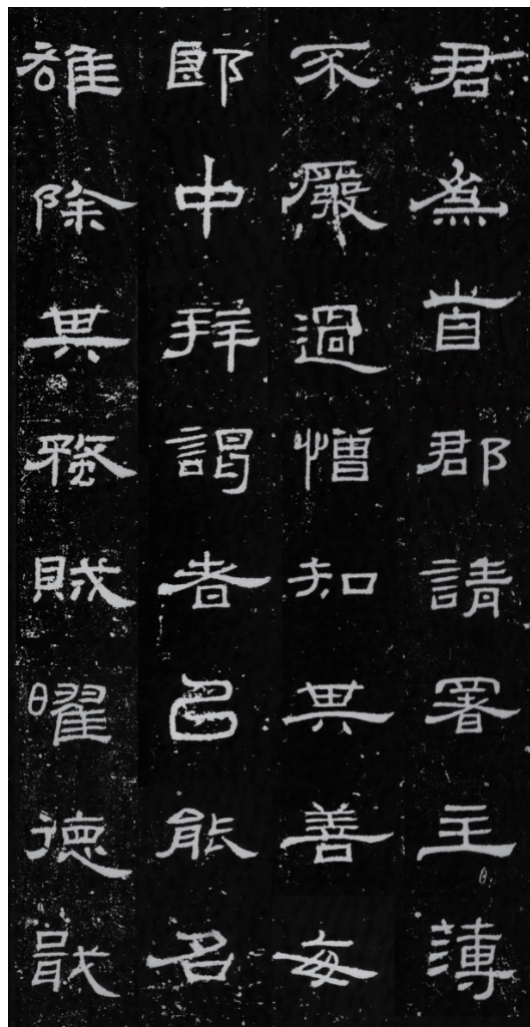 君為首郡請署主薄
不嚴過憎知其善每
郎中拜謁者以能名
雄除其蝥賊曜德戢